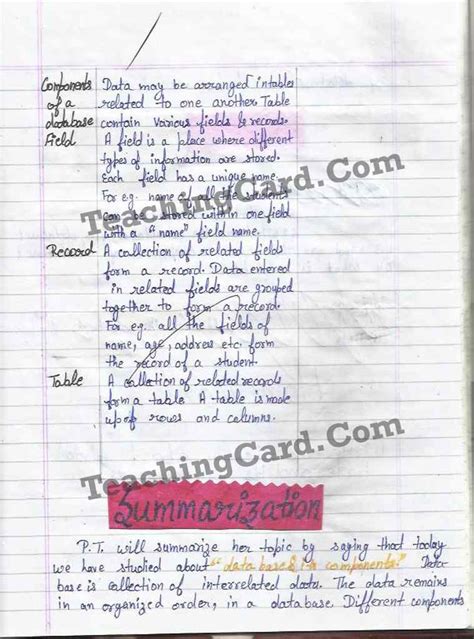 Components Data may be arranged intables
of a related to one another Table
database contain various fields & records.
Field A field is a place where different
types of information are stored.
Each field has a unique name.
For eg. name of all the students
can be stored within one field
with a "name" field name.
TeachingCard.Com
Record A collection of related fields
form a record. Data entered
in related fields are grouped
together to form a record.
For eg. all the fields of
name, age, address etc. form
the record of a student.
Table A collection of related records
form a table. A table is made
up of rows and columns.
TeachingCard.Com
Summarization
P.T. will summarize her topic by saying that today
we have studied about "data base & its components." Data-
base is collection of interrelated data. The data remains
in an organized order, in a database. Different components